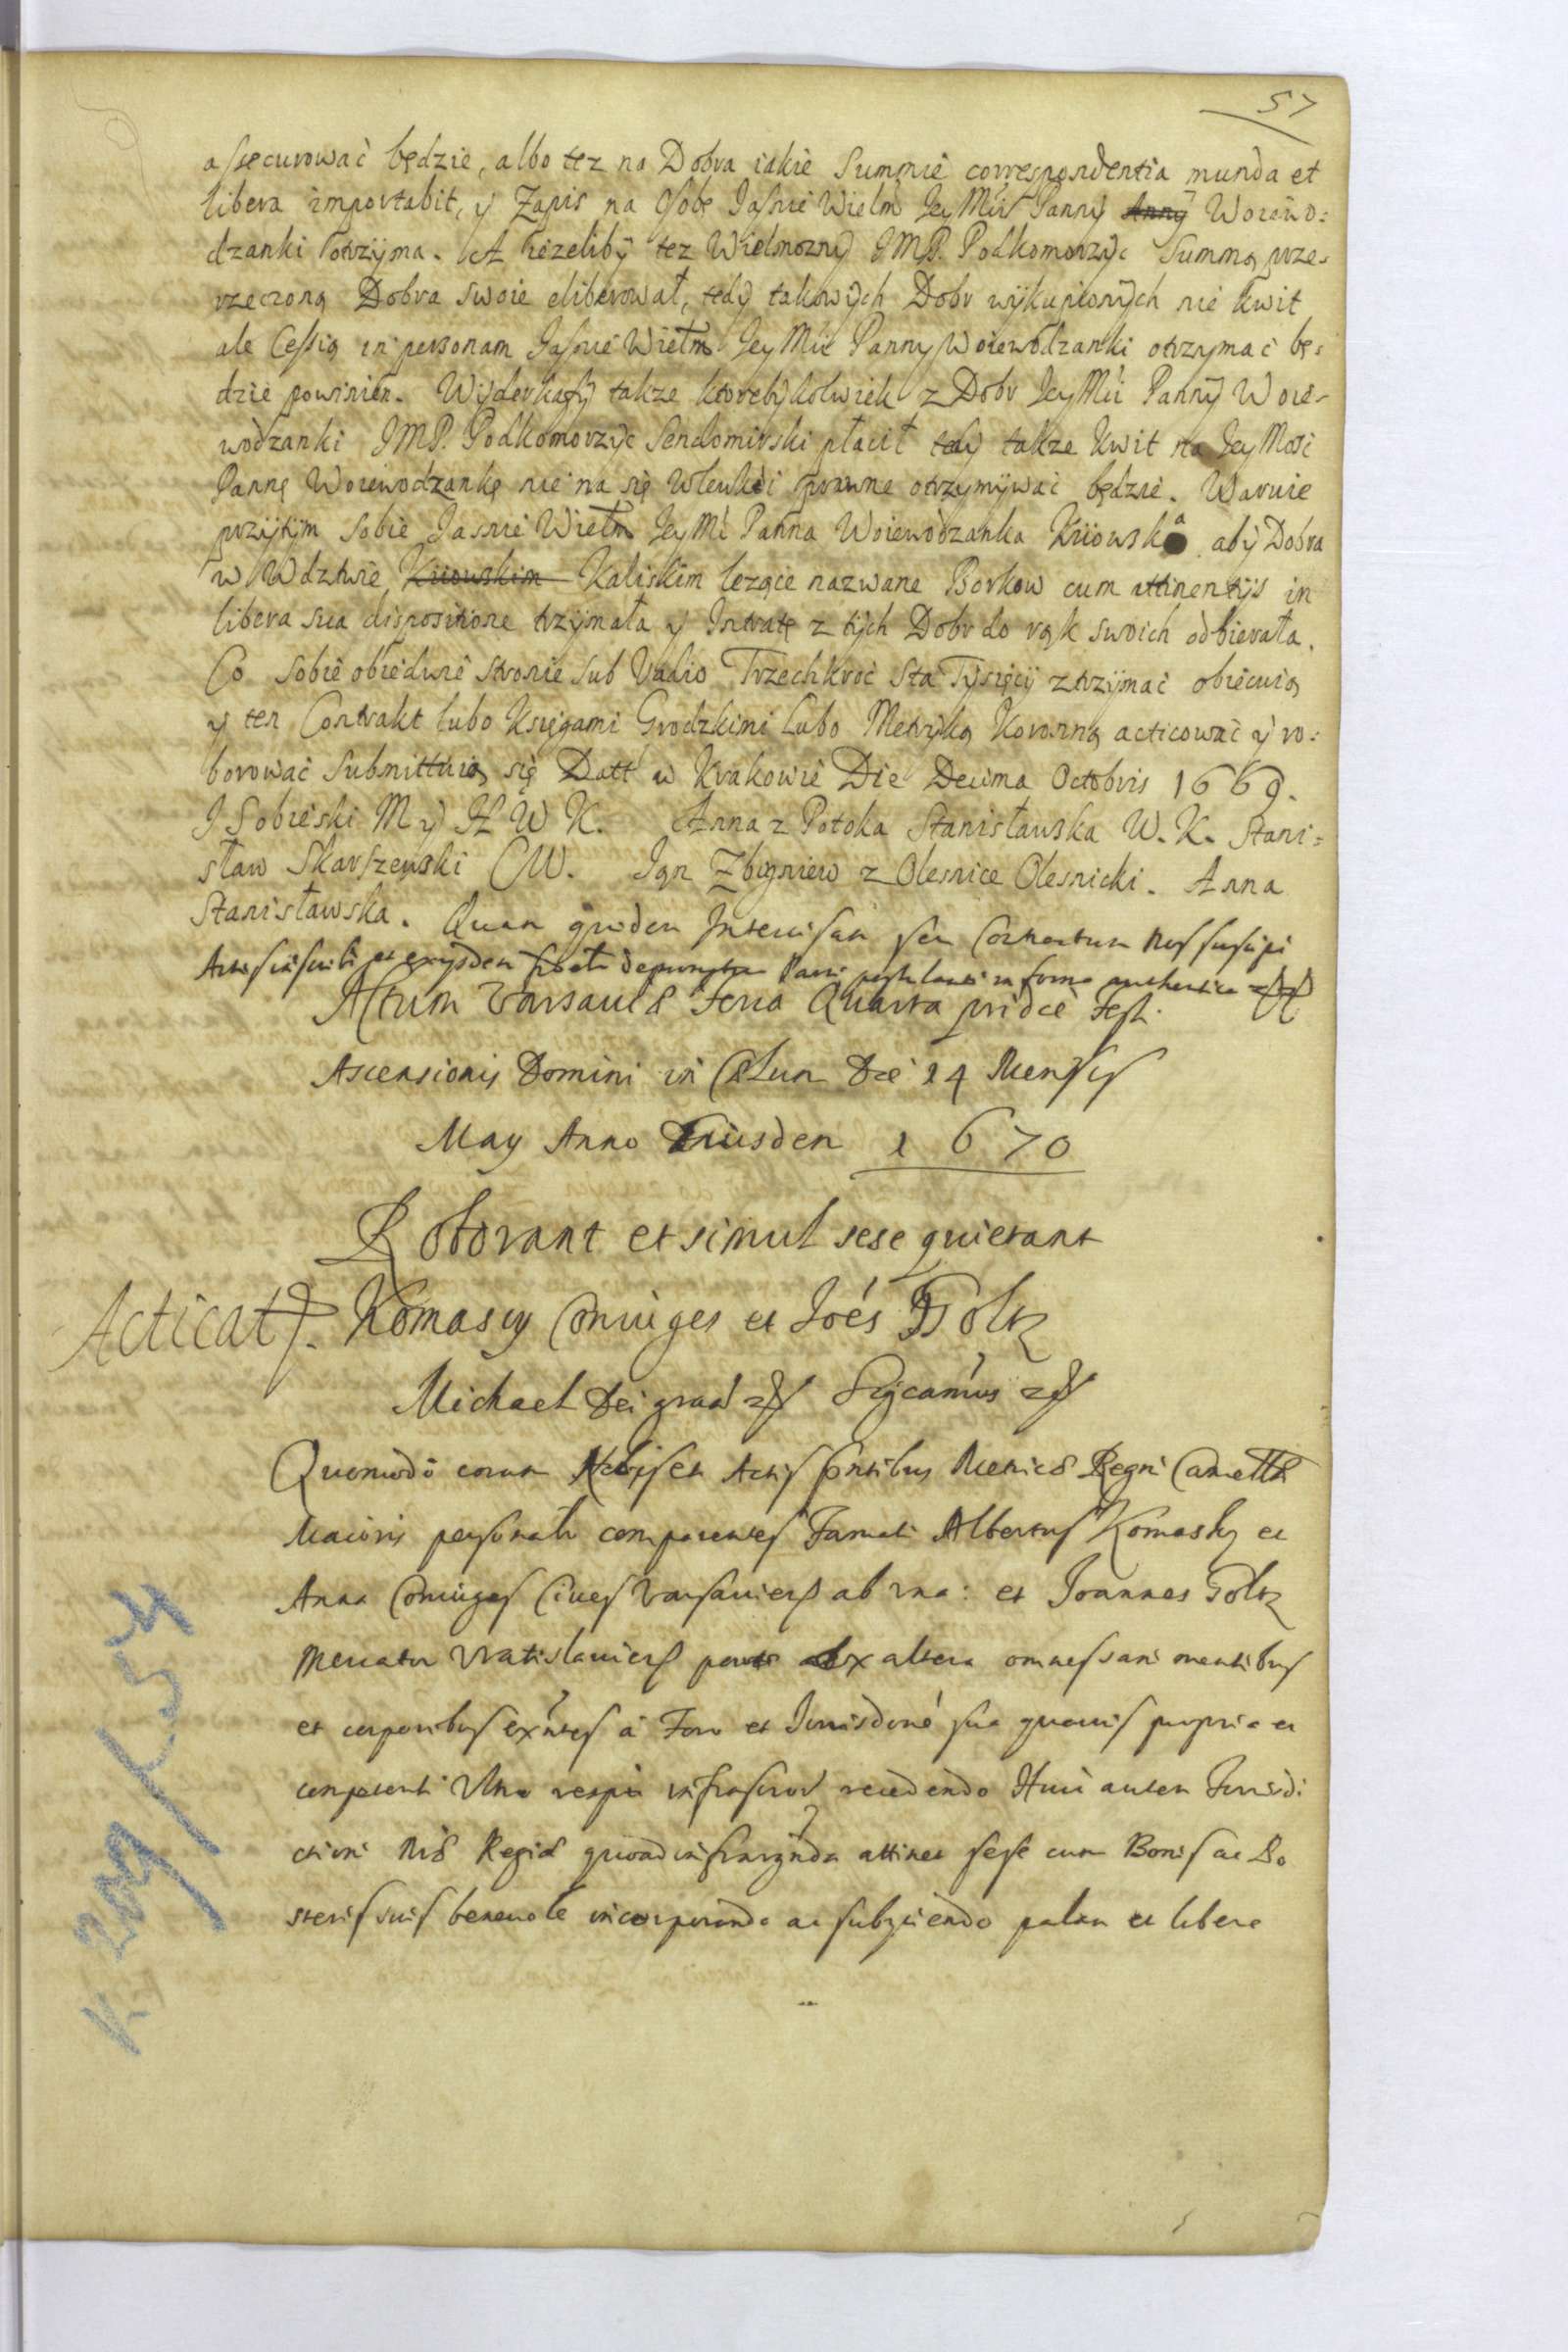 57
assecurować będzie, albo tez na Dobra iakie Summie correspondentia munda et
libera importabit, y Zapis na Osobę Jasnie Wielm Jey Mśći Panny Anny Woiewo:
dzanki otrzyma. A ieżeliby tez Wielmozny JMP. Podkomorzyc Summą prze-
rzeczoną Dobra swoie eliberował, tedy takowych Dobr wykupionych nie kwit
ale Cessią in personam Jasnie Wielm Jey Mśći Panny Woiewodzanki otrzymać bę:
dzie powinien. Wyderkaffy takze ktorebykolwiek z Dobr Jey Mśći Panny Woie-
wodzanki JMP. Podkomorzyc Sendomirski płacił tedy takze kwit na Jey Mość
Pannę Woiewodzankę nie na się wlewki prawne otrzymywać będzie. Waruie
przytym sobie Jasnie Wielm Jey Mć Panna Woiewodzanka Kiiowska aby Dobra
w Wdztwie Kiiowskim Kaliskim lezące nazwane Borkow cum attinentijs in
libera sua dispositione trzymała y Intratę z tych Dobr do rąk swoich odbierała.
Co sobie obiedwie stronie sub Vadio Trzechkroć Sta Tysięcy ztrzymać obiecuią
y ten Contrakt lubo Księgami Grodzkimi lubo Metryką Koronną acticować y ro:
borować Submittuią się Datt w Krakowie Die Decima Octobris 1669.
J Sobieski M y H W K. Anna z Potoka Stanisławska W. K. Stani=
sław Skarszewski CW. Jan Zbigniew z Olesnice Olesnicki. Anna
Stanisławska. Quam quidem Intercisam seu Contractum Nos suscipi
Actis inscribi et exijsdem Parti postulanti in forma authentica
Actum Varsaviæ Feria Quarta pridie Fest.
Ascensionis Domini in Cælum Die 14 Mensis
May Anno Eiusdem 1670
Roborant et simul sese quietant
Acticat. Komascy Coniuges et Joés Goltz
Michael Dei grad Sigcamus
Quomodo coram Nobis et Actis pntibus Metrices Regni Cancell
Maioris personalr comparentes Famati Albertus Komasky et
Anna Coniuges Cives Varsaviens ab una: et Joannes Goltz
Mercator Vratislaviens parte ex altera omnes sani mentibus
et corporibus exntes a Foro et Jurisdoné sua quavis propria et
competenti recedendo Huic autem Jurisdi
ctioni Regiæ quoad attinet sese cum Bonis ac Po
steris suis benevole incorporando ac subijciendo palam et libere
K 209/54